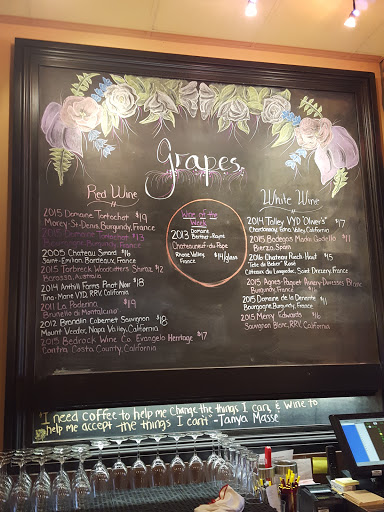 Grapes
Red Wine
2015 Domaine Tortochot $19
Morey-St-Denis, Burgundy, France
$13
Burgundy, France
2005 Chateau Simard $16
Saint-Emilion, Bordeaux, France
2015 Torbreck Woodcutters Shiraz $12
Barossa, Australia
2014 Anthill Farms Pinot Noir $18
Tina-Marie VYD, RRV, California
2011 La $19
Brunello di Montalcino
2012 Brandlin Cabernet Sauvignon $18
Mount Veeder, Napa Valley, California
2015 Bedrock Wine Co. Evangelo Heritage $17
Contra Costa County, California
Wine of the
Week
2013 Domaine
Chateauneuf-du-Pape
Rhone Valley, $14/glass
France
White Wine
2014 Talley VYD "Oliver's" $17
Chardonnay, Edna Valley, California
2015 Bodegas Godello $11
Bierzo, Spain
2016 Chateau Puech-Haut $15
"Tete de Belier" Rosé
Coteaux du Languedoc, Saint Drezery, France
2015 Agnes Paquet Auxey-Duresses Blanc
Burgundy, France $18
2015 Domaine de la $11
Bourgogne, Burgundy, France
2015 Merry Edwards $16
Sauvignon Blanc, RRV, California
"I need coffee to help me change the things I can, & wine to
help me accept the things I can't" -Tanya Masse